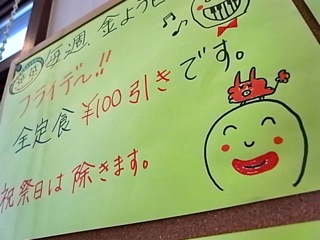 毎週、金よう日
フライデー!!
全定食 ¥100引きです。
祝祭日は除きます。